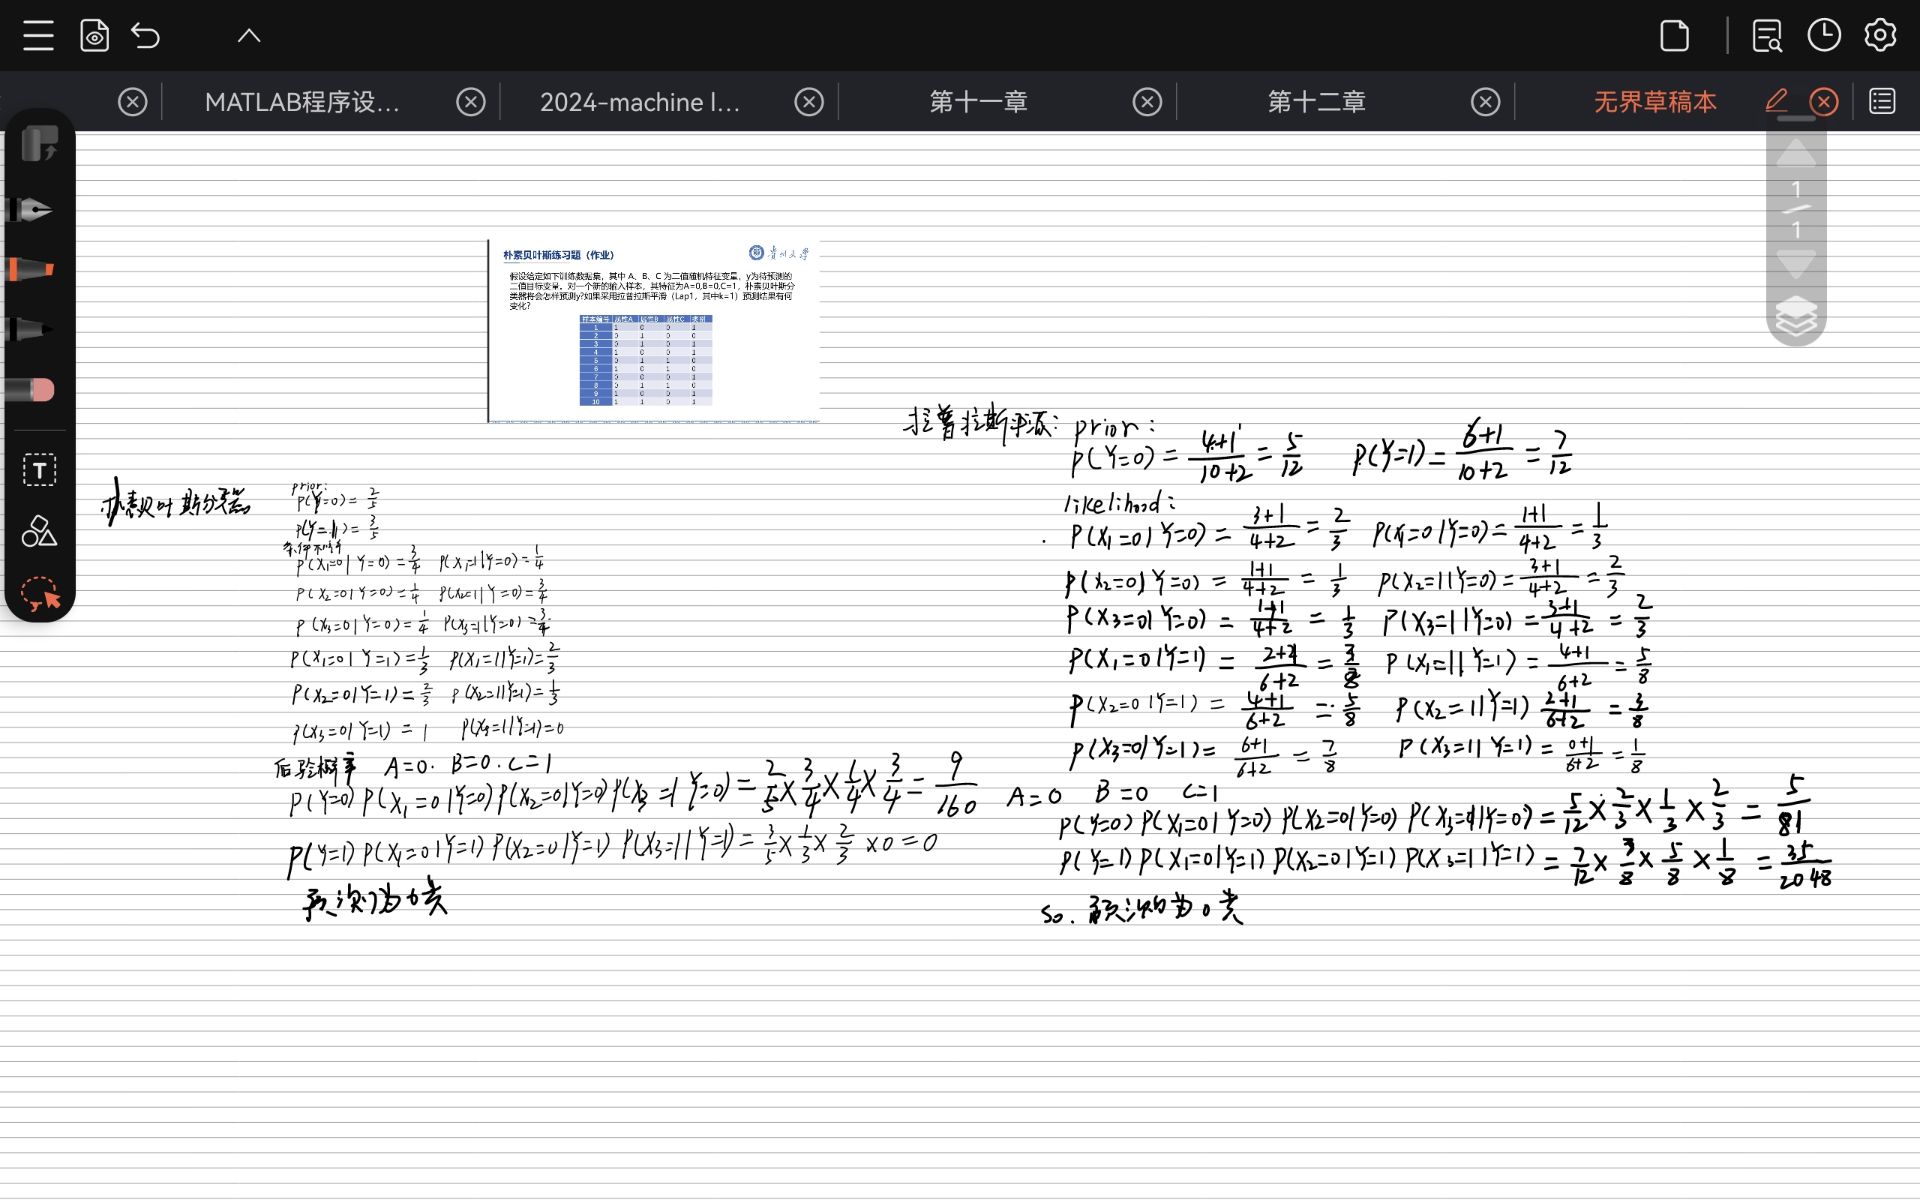 MATLAB程序设...
2024-machine l...
第十一章
第十二章
无界草稿本
1
1
T
朴素贝叶斯练习题（作业）
贵州大学
假设给定如下训练数据集，其中 A、B、C 为二值随机特征变量，y为待预测的
二值目标变量。对一个新的输入样本，其特征为A=0,B=0,C=1，朴素贝叶斯分
类器将会怎样预测y?如果采用拉普拉斯平滑（Lap1，其中k=1）预测结果有何
变化?
样本编号 属性A 属性B 属性C 类别
1 1 0 0 1
2 0 1 0 0
3 0 1 0 1
4 1 0 0 1
5 0 1 1 0
6 1 0 1 0
7 0 0 0 1
8 0 1 1 0
9 1 0 0 1
10 1 1 0 1
朴素贝叶斯分类器
prior:
P(Y=0) = 2/5
P(Y=1) = 3/5
P(X1=0|Y=0) = 3/4 P(X1=1|Y=0) = 1/4
P(X2=0|Y=0) = 1/4 P(X2=1|Y=0) = 3/4
P(X3=0|Y=0) = 1/4 P(X3=1|Y=0) = 3/4
P(X1=0|Y=1) = 1/3 P(X1=1|Y=1) = 2/3
P(X2=0|Y=1) = 2/3 P(X2=1|Y=1) = 1/3
P(X3=0|Y=1) = 1 P(X3=1|Y=1) = 0
后验概率 A=0. B=0. C=1
P(Y=0) P(X1=0|Y=0) P(X2=0|Y=0) P(X3=1|Y=0) = 2/5 × 3/4 × 1/4 × 3/4 = 9/160
P(Y=1) P(X1=0|Y=1) P(X2=0|Y=1) P(X3=1|Y=1) = 3/5 × 1/3 × 2/3 × 0 = 0
预测为0类
拉普拉斯平滑: prior:
P(Y=0) = 4+1/10+2 = 5/12 P(Y=1) = 6+1/10+2 = 7/12
likelihood:
P(X1=0|Y=0) = 3+1/4+2 = 2/3 P(X1=0|Y=0) = 1+1/4+2 = 1/3
P(X2=0|Y=0) = 1+1/4+2 = 1/3 P(X2=1|Y=0) = 3+1/4+2 = 2/3
P(X3=0|Y=0) = 1+1/4+2 = 1/3 P(X3=1|Y=0) = 3+1/4+2 = 2/3
P(X1=0|Y=1) = 2+1/6+2 = 3/8 P(X1=1|Y=1) = 4+1/6+2 = 5/8
P(X2=0|Y=1) = 4+1/6+2 = 5/8 P(X2=1|Y=1) 2+1/6+2 = 3/8
P(X3=0|Y=1) = 6+1/6+2 = 7/8 P(X3=1|Y=1) = 0+1/6+2 = 1/8
A=0 B=0 C=1
P(Y=0) P(X1=0|Y=0) P(X2=0|Y=0) P(X3=1|Y=0) = 5/12 × 2/3 × 1/3 × 2/3 = 5/81
P(Y=1) P(X1=0|Y=1) P(X2=0|Y=1) P(X3=1|Y=1) = 7/12 × 3/8 × 5/8 × 1/8 = 35/2048
So. 预测为0类